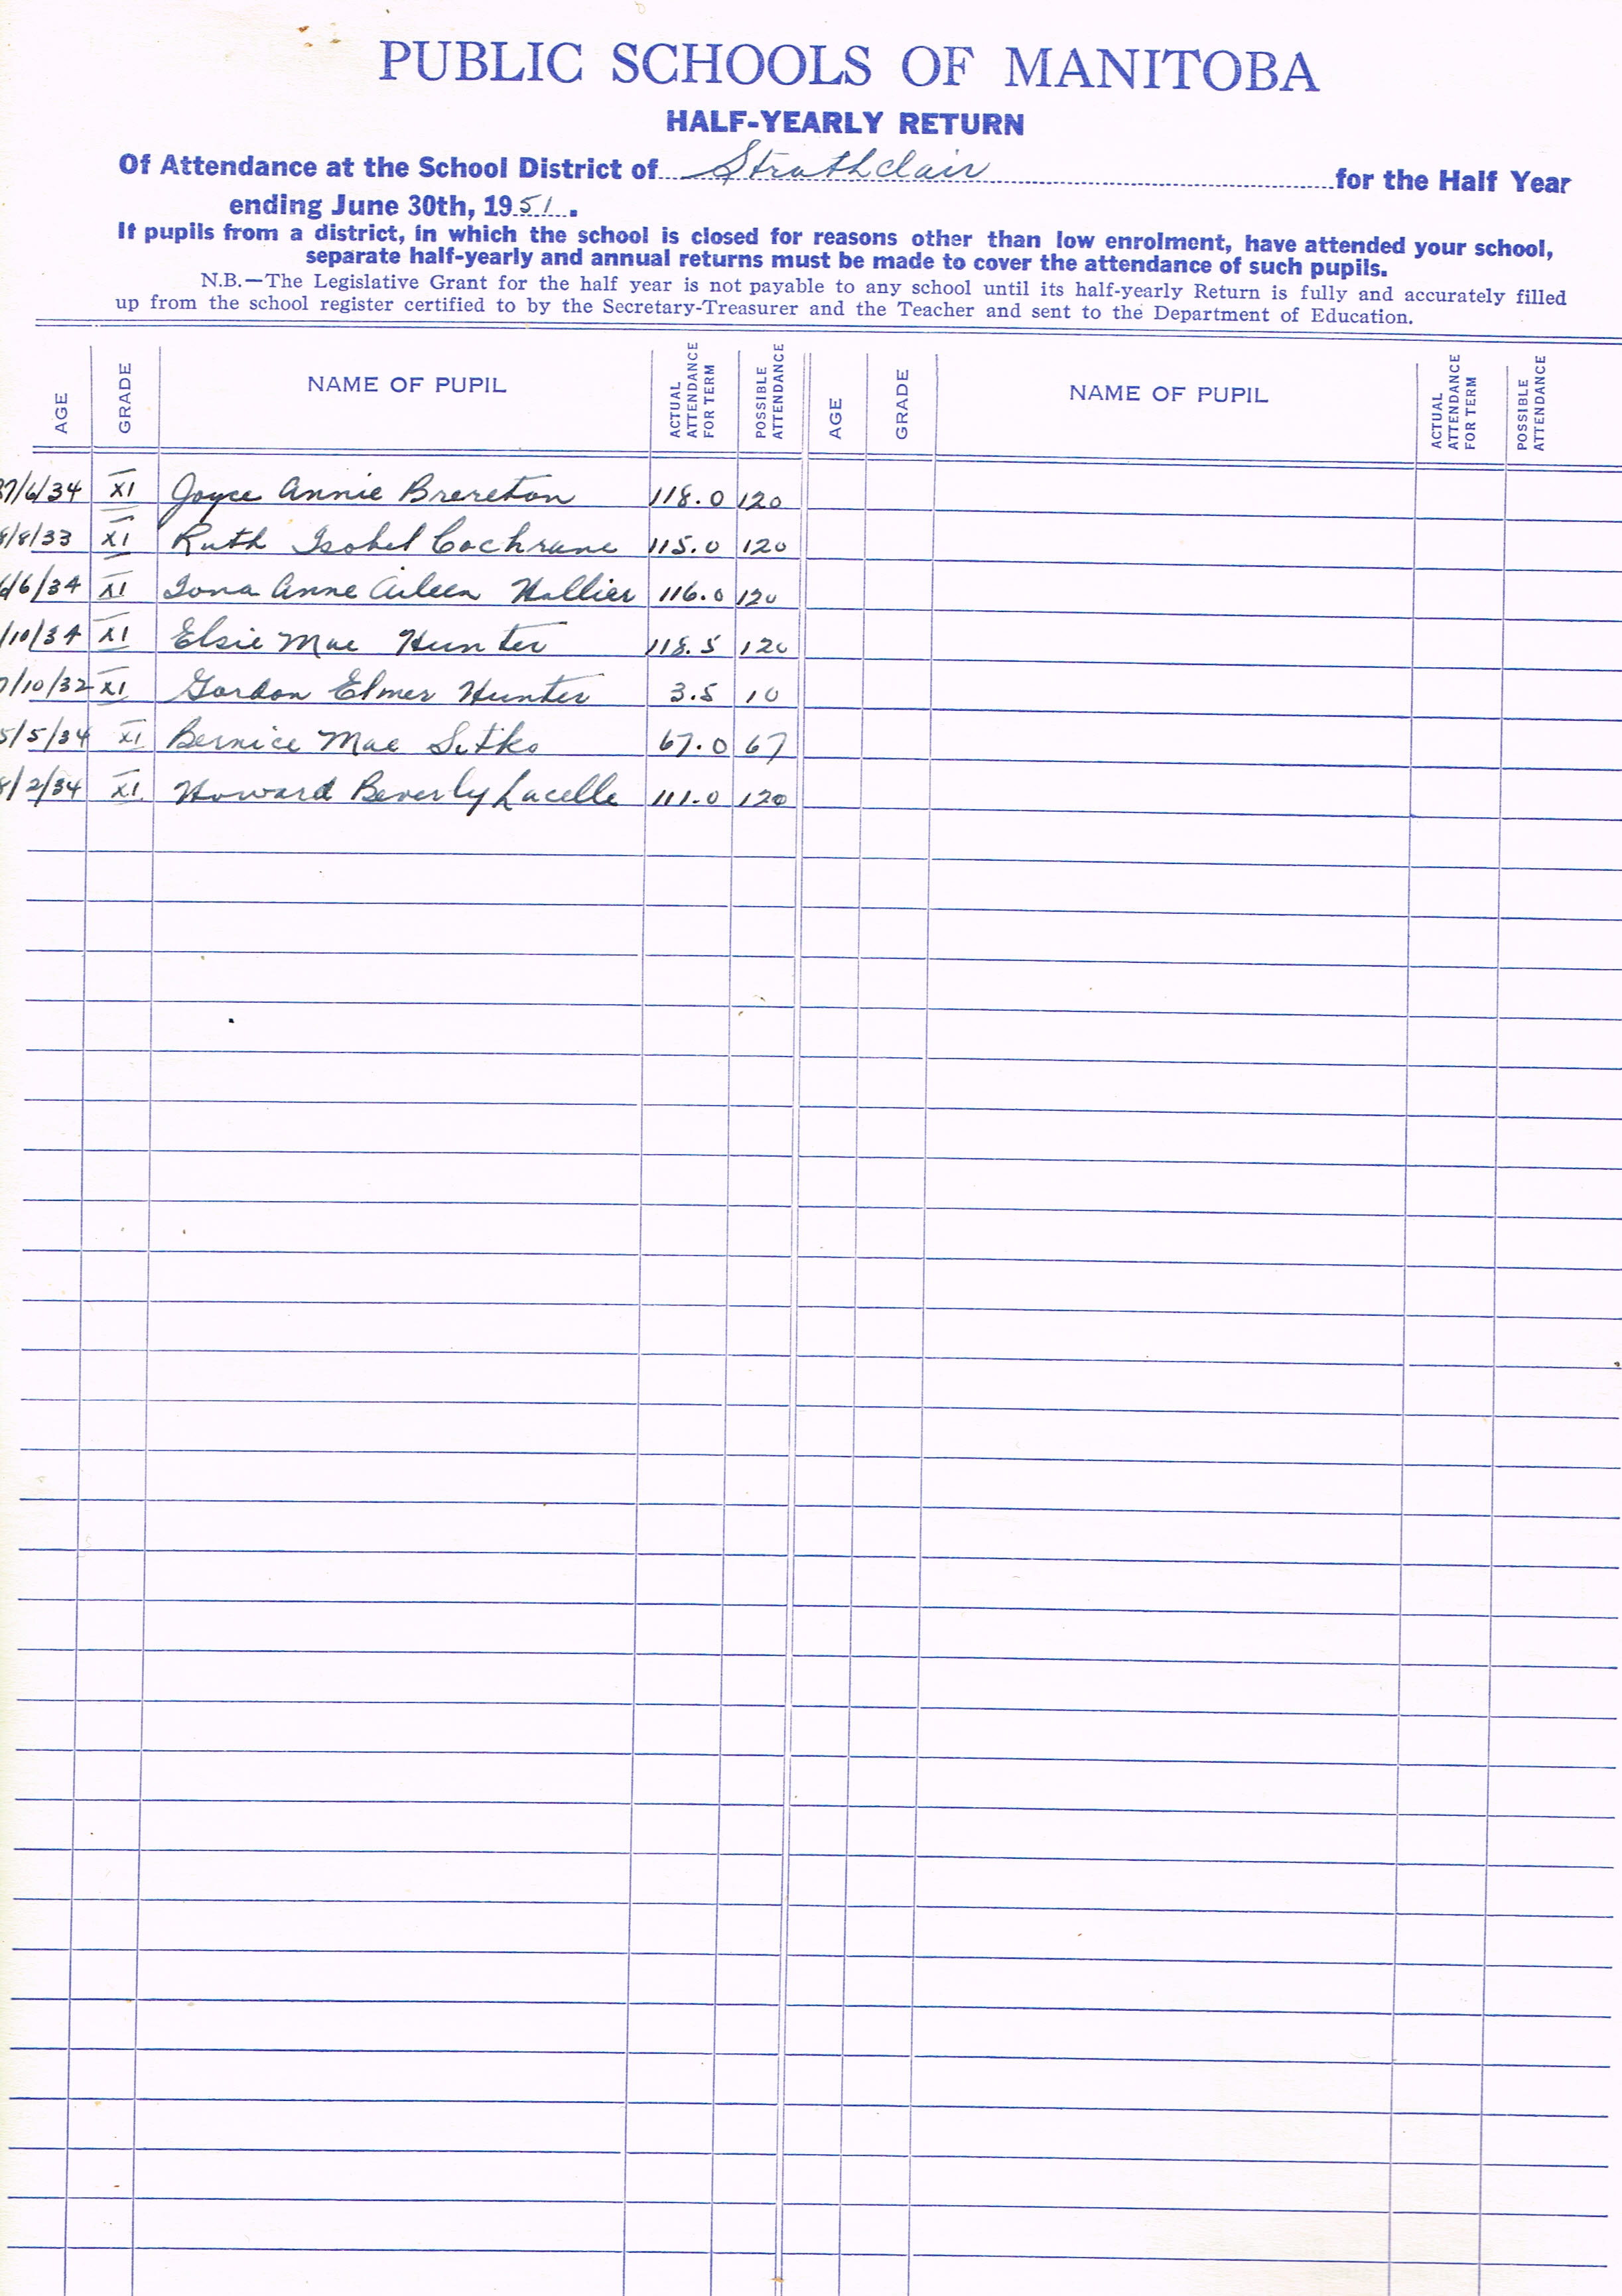 PUBLIC SCHOOLS OF MANITOBA
HALF-YEARLY RETURN
Of Attendance at the School District of Strathclair for the Half Year
ending June 30th, 1951.
If pupils from a district, in which the school is closed for reasons other than low enrolment, have attended your school,
separate half-yearly and annual returns must be made to cover the attendance of such pupils.
N.B.—The Legislative Grant for the half year is not payable to any school until its half-yearly Return is fully and accurately filled
up from the school register certified to by the Secretary-Treasurer and the Teacher and sent to the Department of Education.
AGE GRADE NAME OF PUPIL ACTUAL ATTENDANCE FOR TERM POSSIBLE ATTENDANCE AGE GRADE NAME OF PUPIL ACTUAL ATTENDANCE FOR TERM POSSIBLE ATTENDANCE
7/6/34 XI Joyce Annie Brereton 118.0 120
/8/33 XI Ruth Isobel Cochrane 115.0 120
/6/34 XI Iona Anne Aileen Hallier 116.0 120
/10/34 XI Elsie Mae Hunter 118.5 120
/10/32 XI Gordon Elmer Hunter 3.5 10
5/5/34 XI Bernice Mae Sitko 67.0 67
/2/34 XI Howard Beverly Lacelle 111.0 120